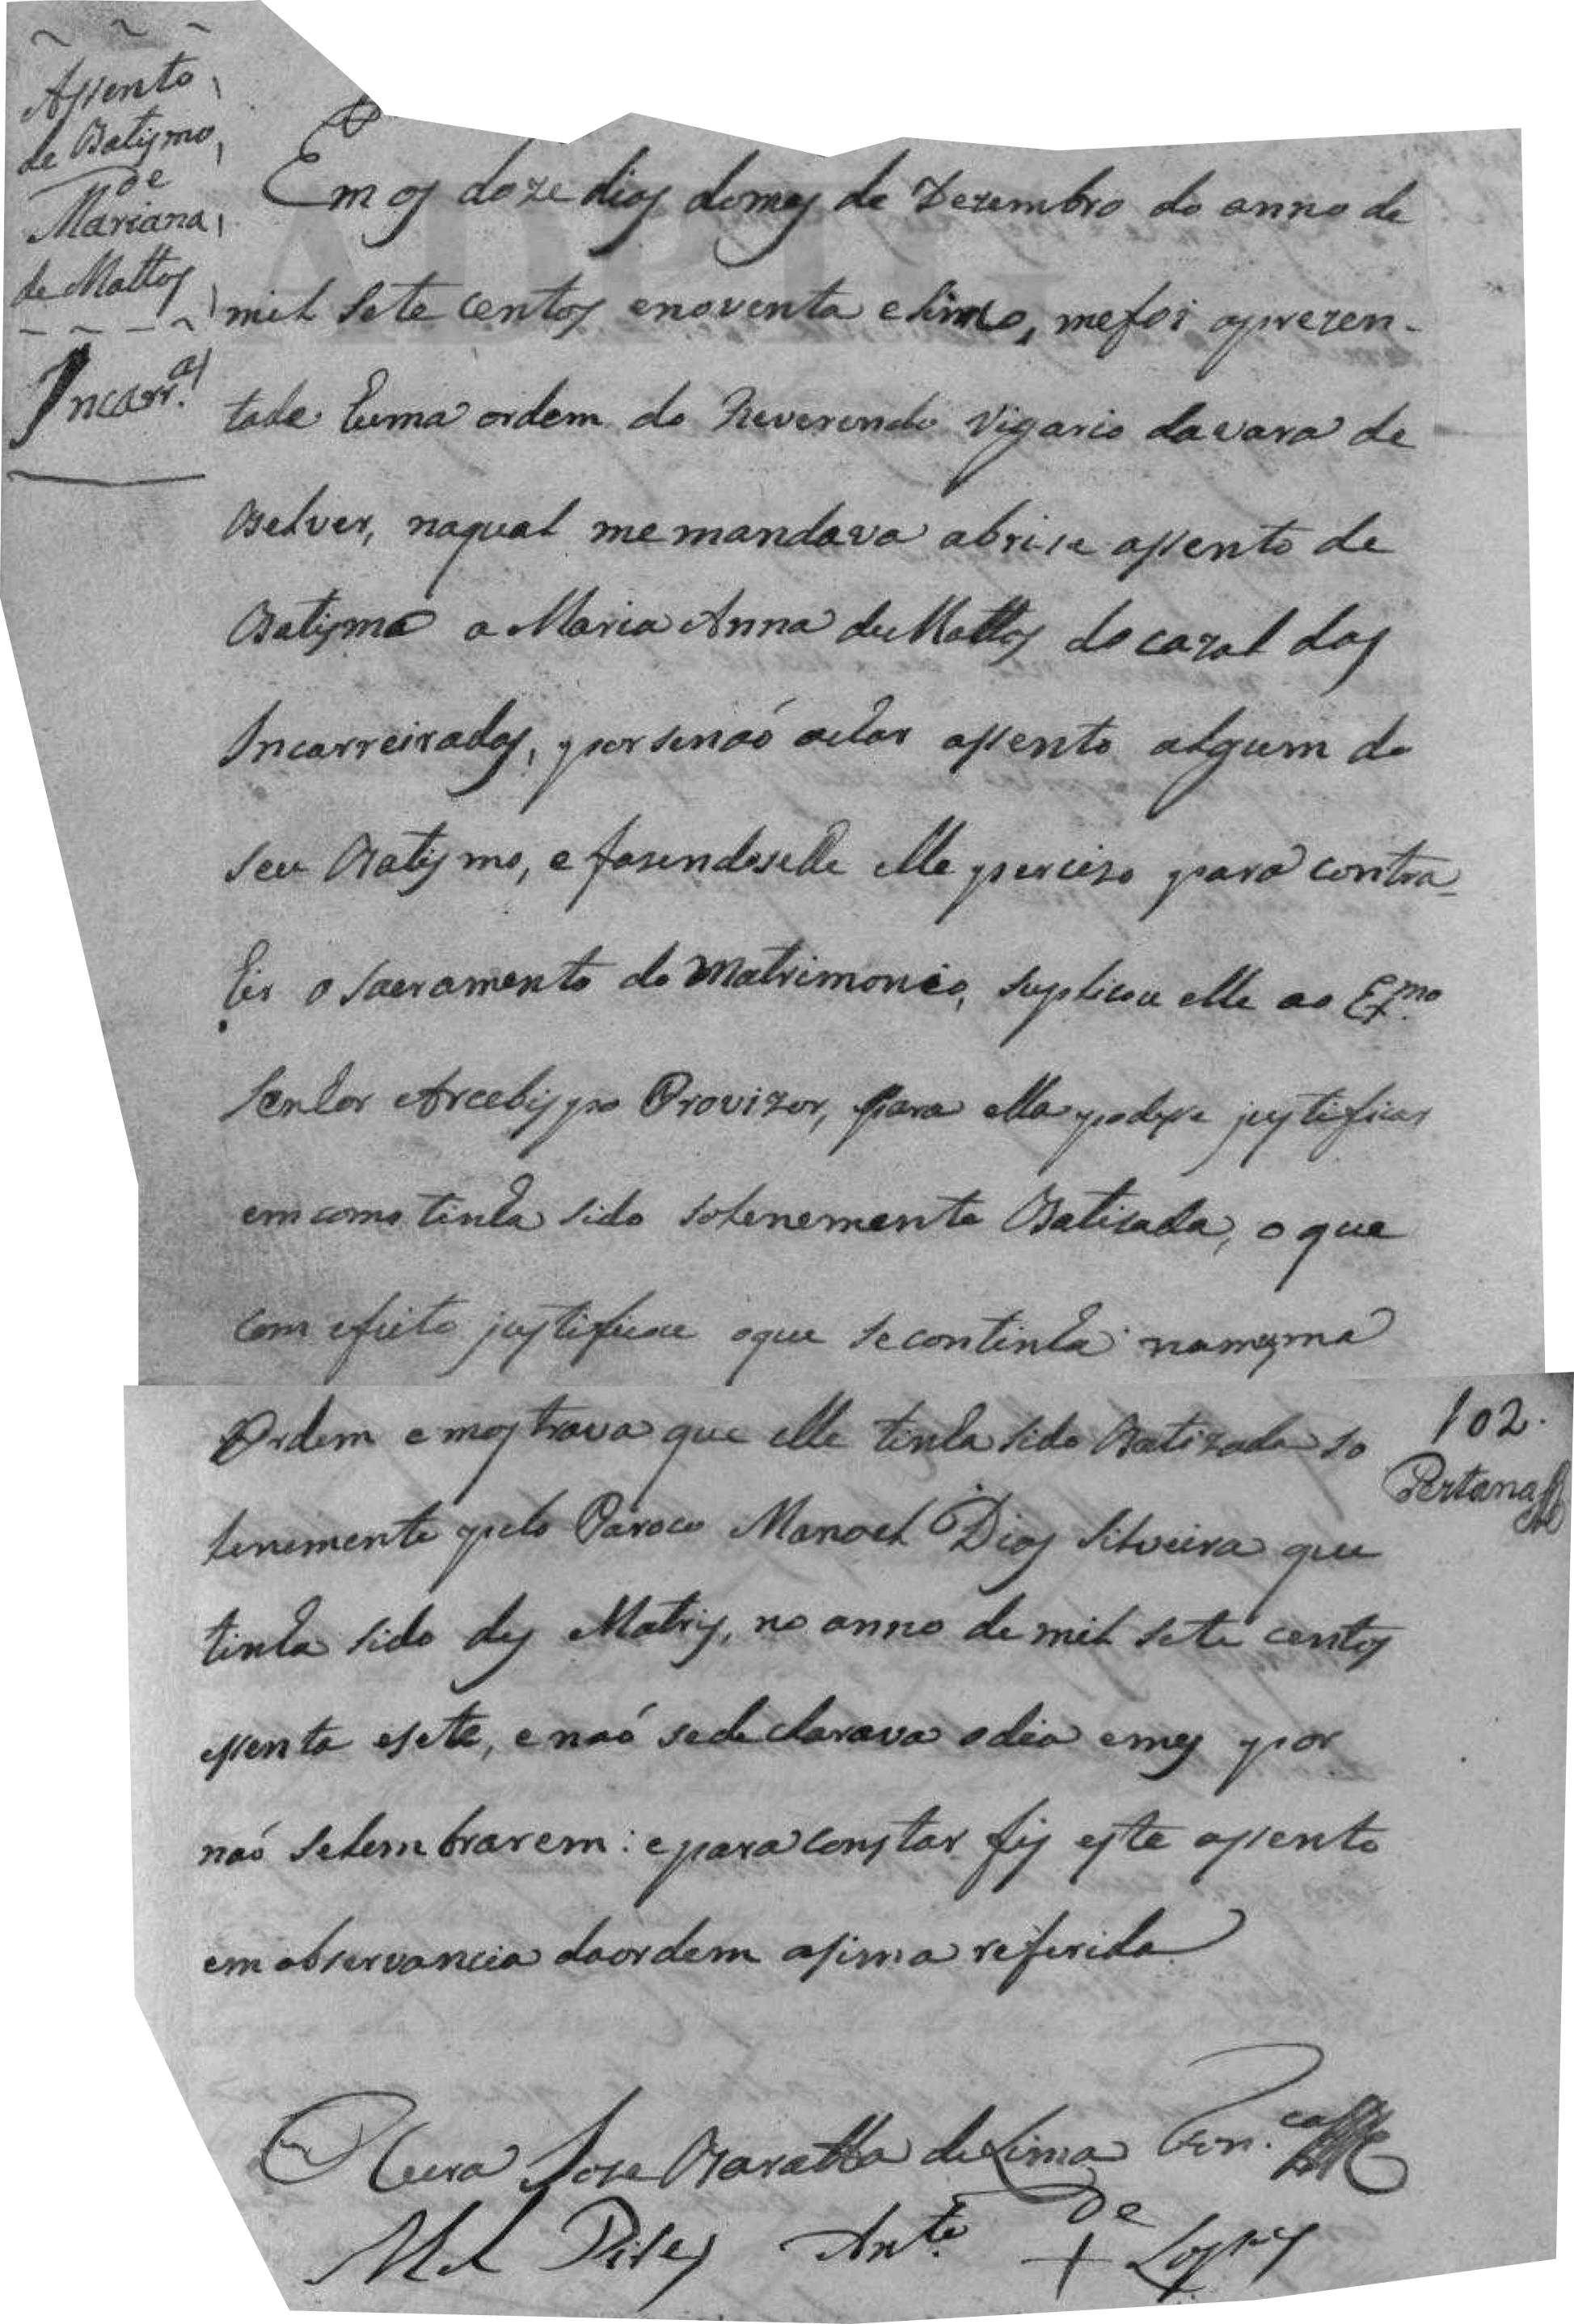 Assento
de Batismo
de
Mariana
de Mattos
Incarr.os
Em os doze dias do mes de Dezembro do anno de
mil sete centos e noventa e sinco, me foi aprezen-
tada huma ordem do Reverendo Vigario da vara de
Belver, na qual me mandava abrise assento de
Batismo a Maria Anna de Mattos do cazal dos
Incarreirados, por se naó achar assento algum do
seu Batismo, e fasendoselhe elle perciso para contra-
hir o sacramento do Matrimonio, suplicou elle ao Ex.mo
Senhor Arcebispo Provizor, para ella podese justificar
em como tinha sido solenemente Batisada, o que
com efeito justificou o que se continha na mesma
Ordem e mostrava que elle tinha sido Batizada so
lenemente pelo Paroco Manoel Dias Silveira que
tinha sido des Matris, no anno de mil sete centos
essenta e sete, e naó se declarava o dia e mes por
naó se lembrarem: e para constar fis este assento
em observancia da ordem asima referida
102.
Pertana
O Cura Jose Baratta de Lima Fon.ca
M.el Pires Ant.o de + Lopes